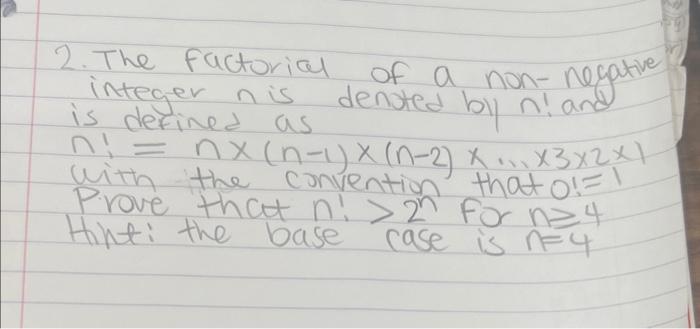 2. The factorial of a non-negative
integer n is denoted by n! and
is defined as
n! = n×(n-1)×(n-2)×...×3×2×1
with the convention that 0!=1
Prove that n! > 2ⁿ for n≥4
Hint: the base case is n=4